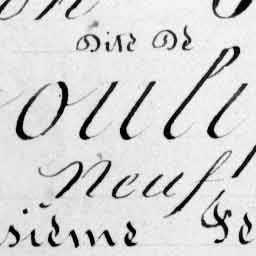 Dite De
ouly
Neuf
sième Fe